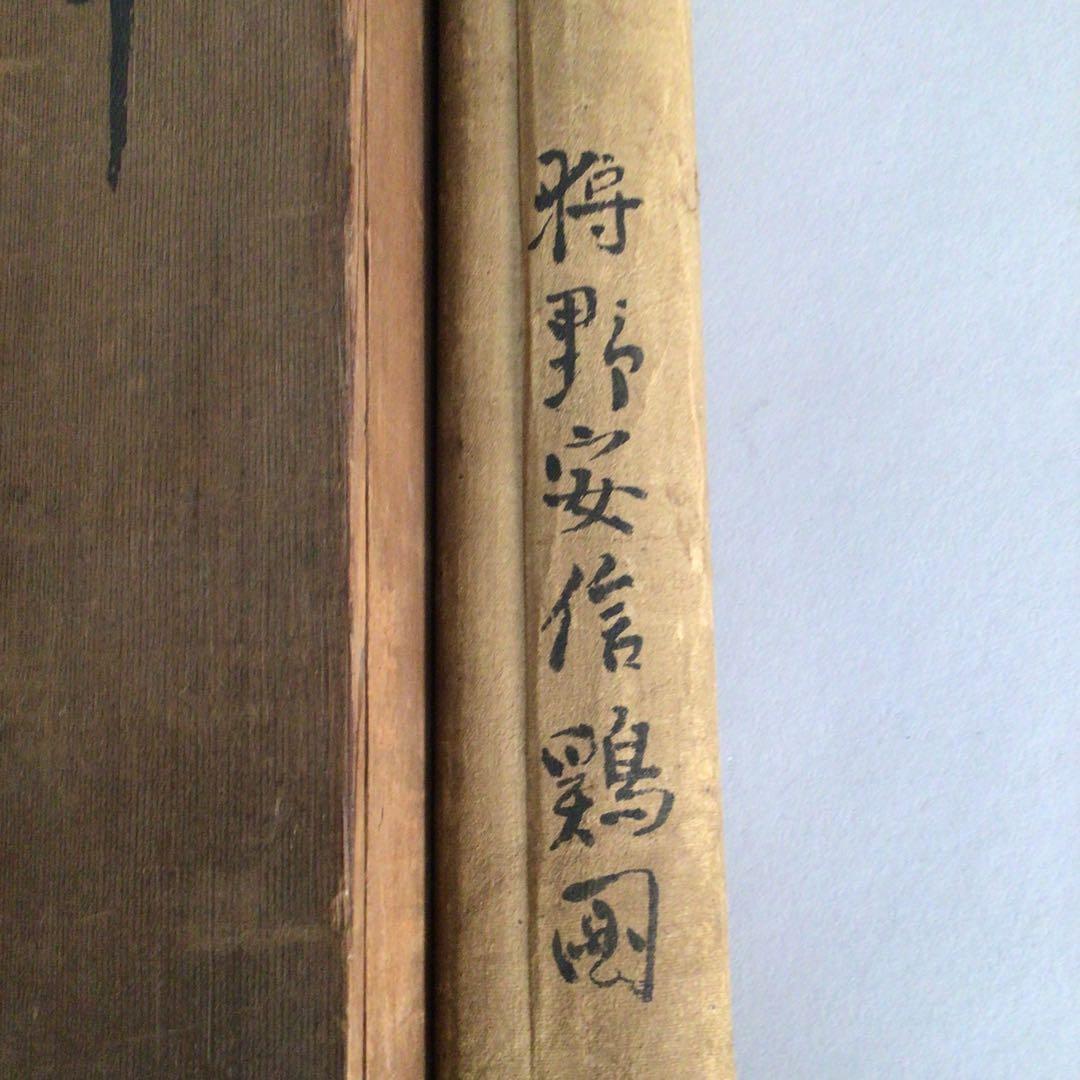 狩野安信鶏圖